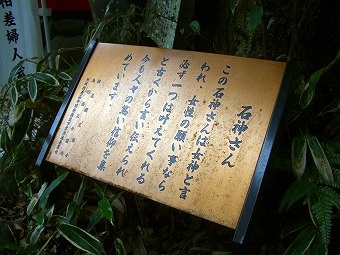 石神さん
この石神さんは女神と言
われ、女性の願い事なら
必ず一つは叶えてくれる
と古くから言い伝えられ
今も人々の熱い信仰を集
めています。
相差婦人会